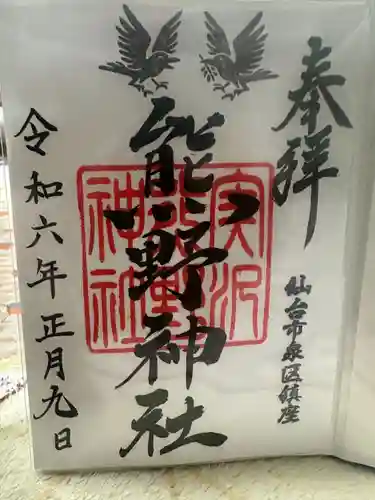 奉拝
仙台市泉区鎮座
熊野神社
実沢熊野神社
令和六年正月九日